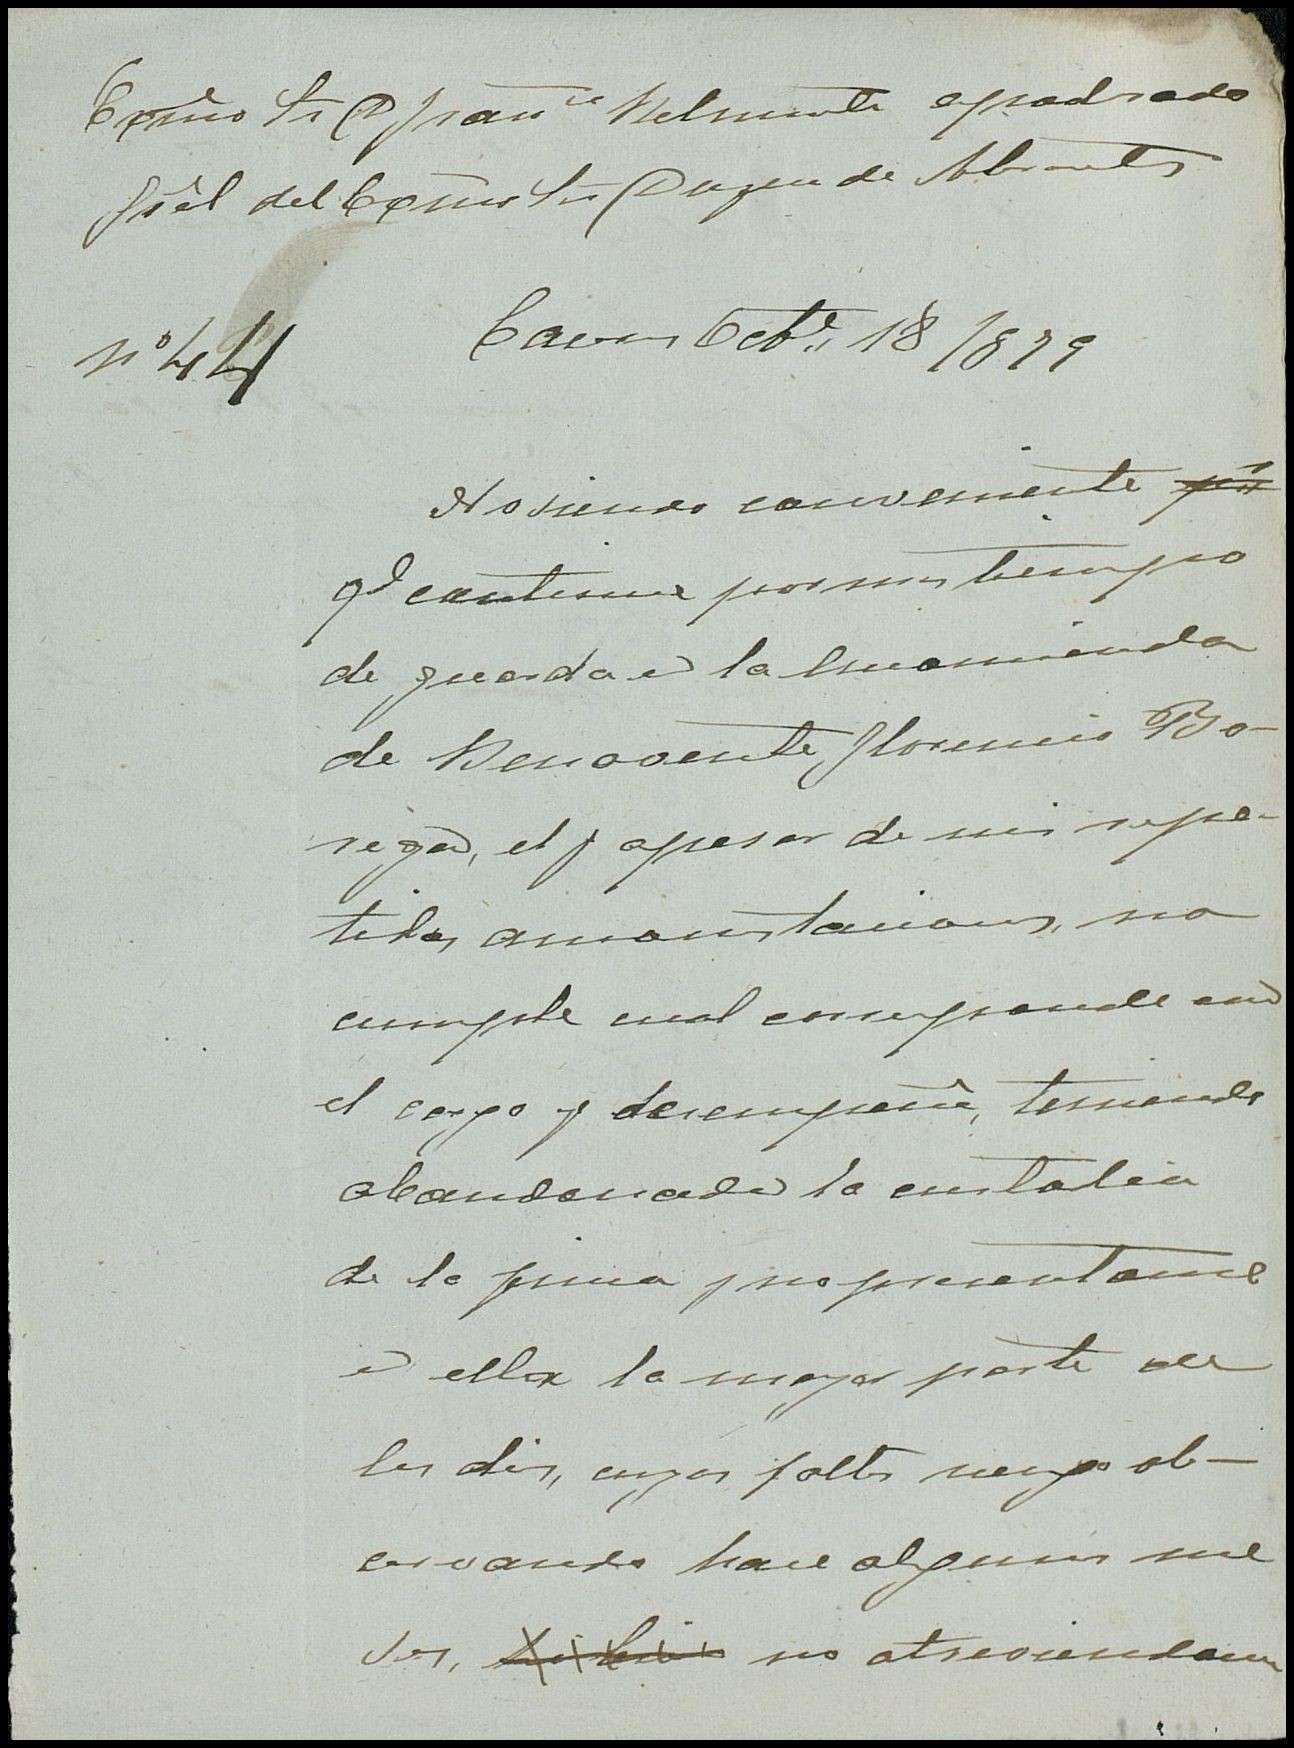 Excmo Sr D Franco Belmonte apoderado
Gral del Excmo Sr Duque de Abrantes
No 44
Caceres Octe 18/879
No siendo conveniente
qe continue por mas tiempo
de guarda en la Encomienda
de Benavente, Florencio Bo-
rega, el q apesar de mis repe-
tidas amonestaciones, no
cumple cual corresponde con
el cargo q desempeña, teniendo
abandonada la custodia
de la finca y no presentarse
en ella la mayor parte de
los dias, cuyas faltas vengo ob-
servando hace algunos me
ses, no atreviendome